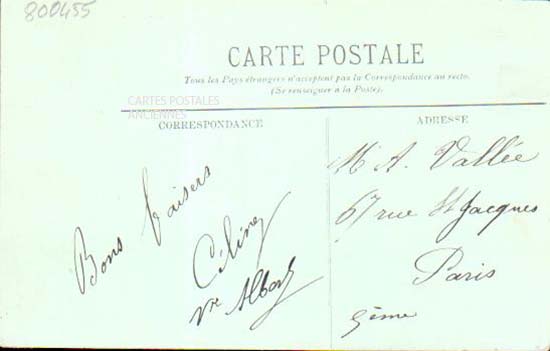 800455
CARTE POSTALE
Tous les Pays étrangers n'acceptent pas la Correspondance au recto.
(Se renseigner à la Poste).
CARTES POSTALES
ANCIENNES
CORRESPONDANCE
Bons baisers
Céline
ADRESSE
Mr A. Vallée
67 rue St Jacques
Paris
5ème